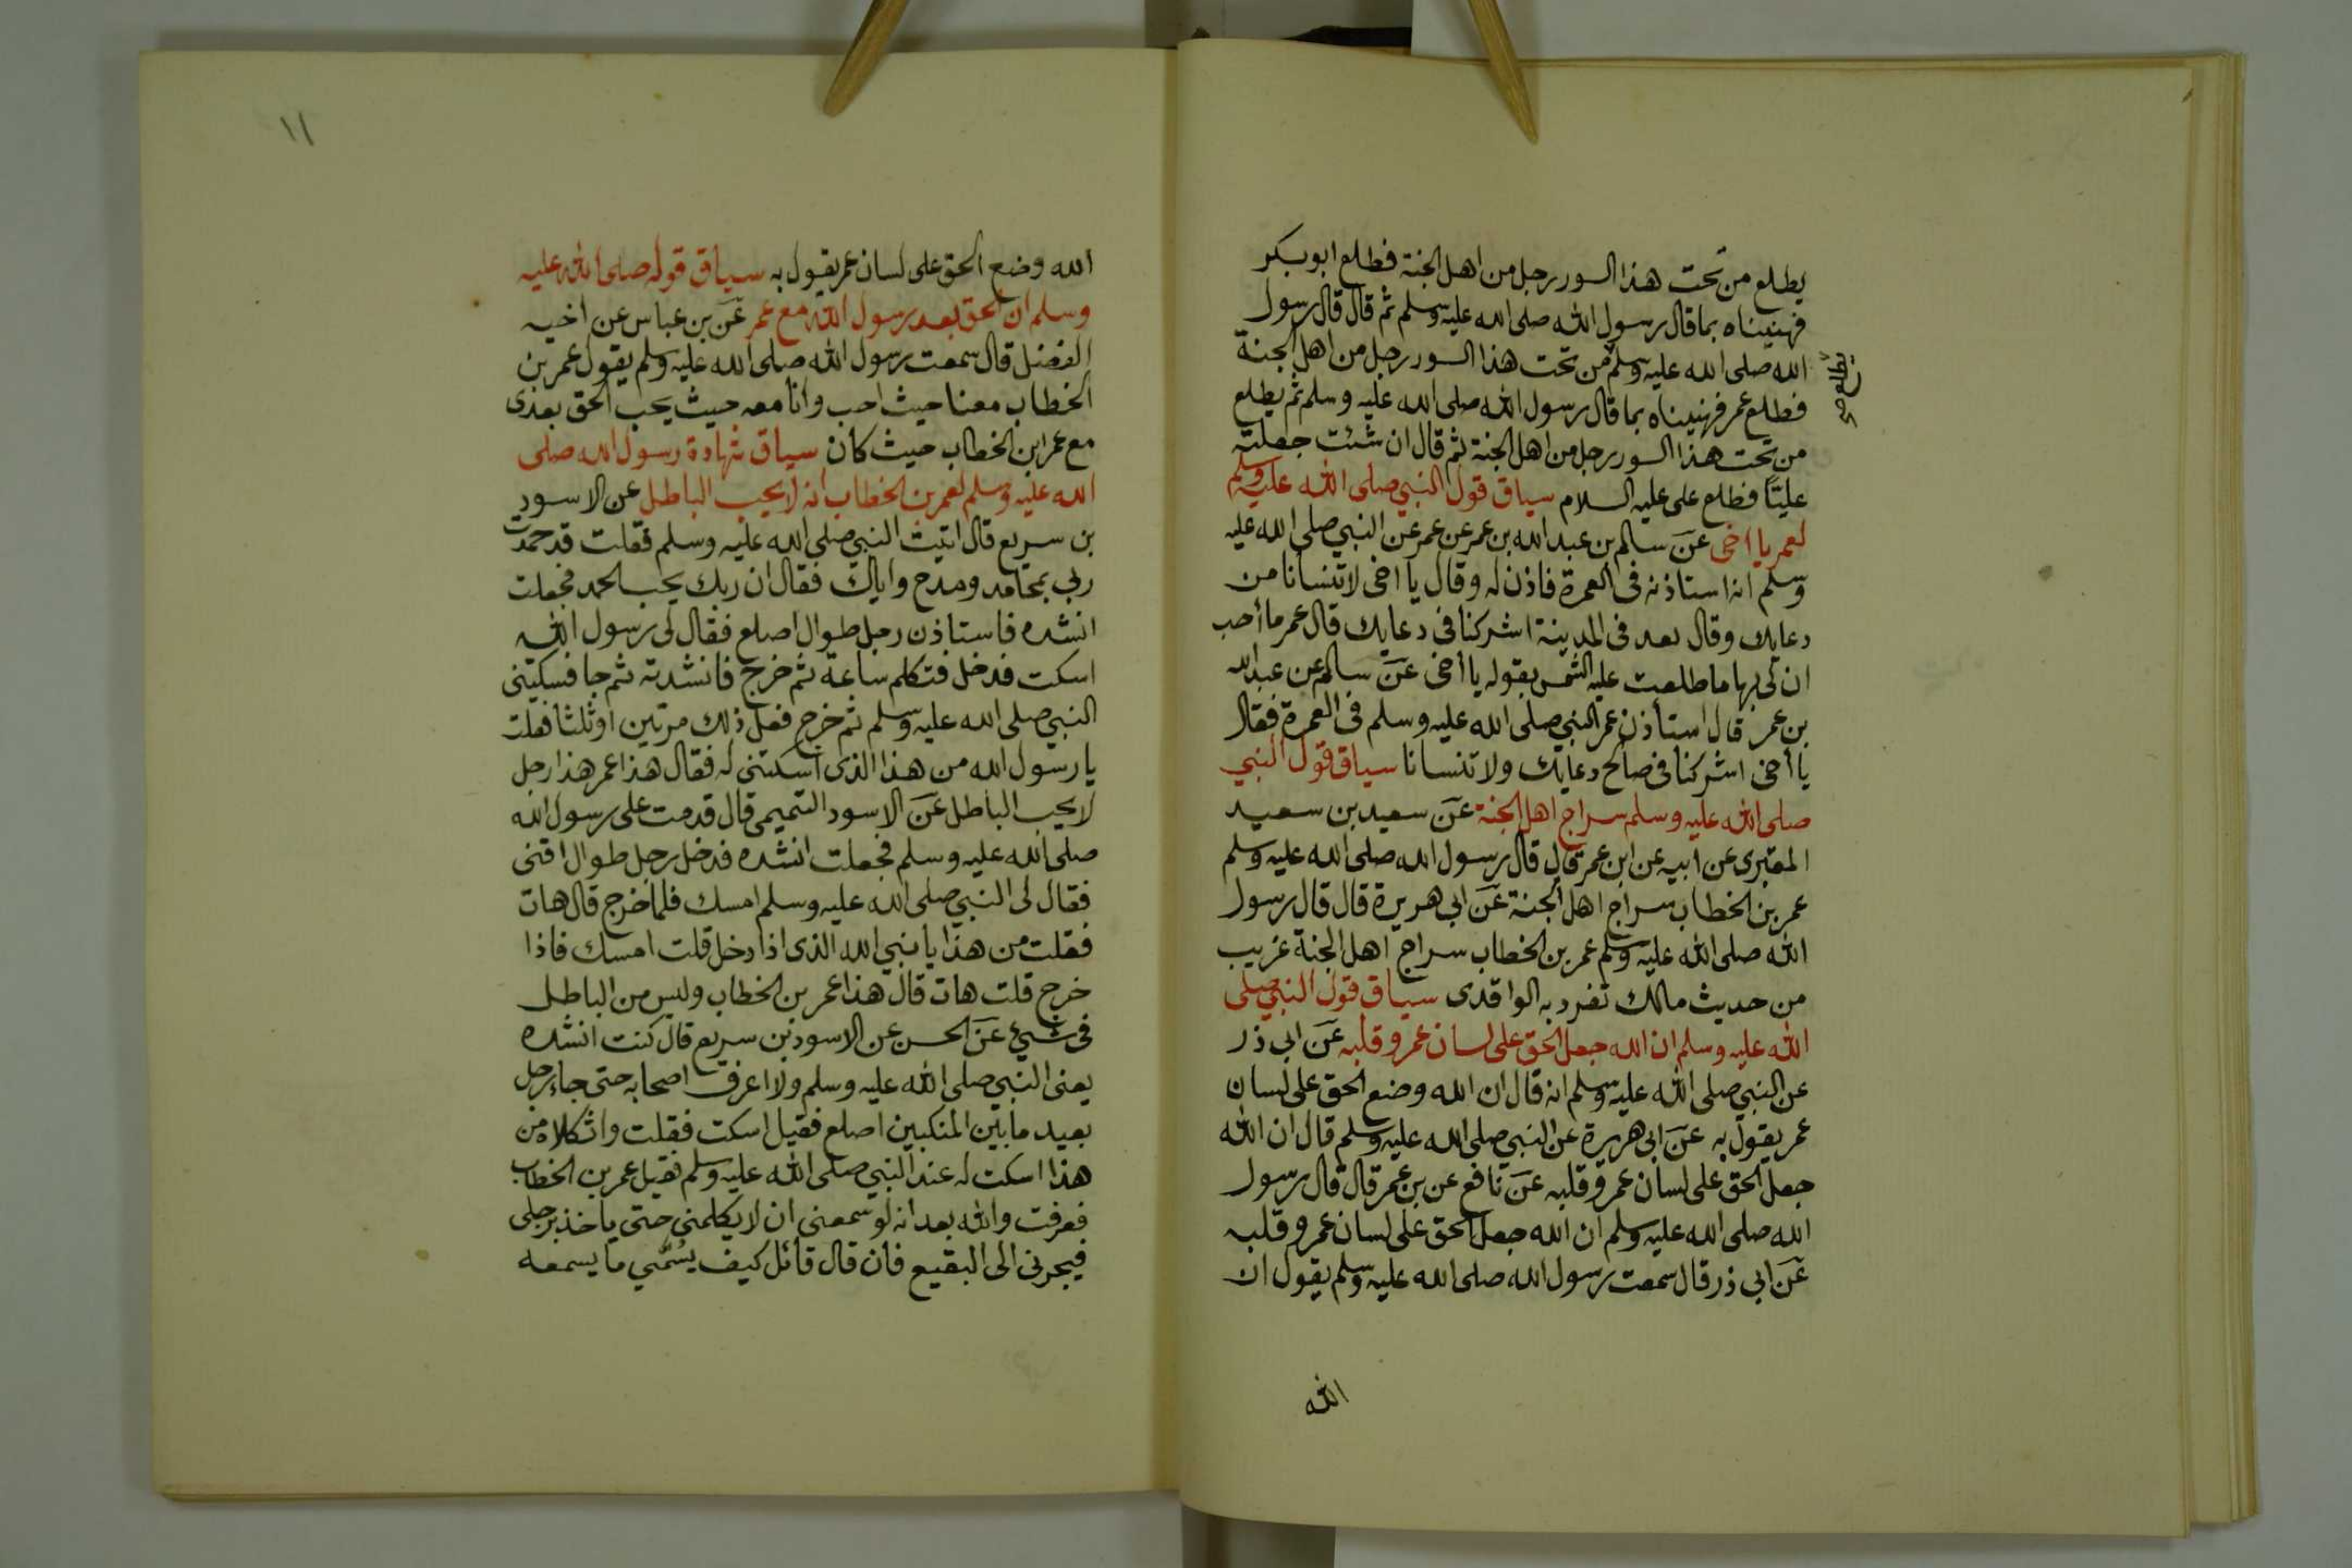 يطلع من تحت هذا السور رجل من اهل الجنة فطلع ابو بكر
فهنيناه بما قال رسول الله صلى الله عليه وسلم ثم قال قال رسول
الله صلى الله عليه وسلم من تحت هذا السور رجل من اهل الجنة
يطلع صح
فطلع عمر فهنيناه بما قال رسول الله صلى الله عليه وسلم ثم يطلع
من تحت هذا السور رجل من اهل الجنة ثم قال ان شئت جعلته
عليّا فطلع على عليه السلام سياق قول النبي صلى الله عليه وسلم
لعمر يا اخى عن سالم بن عبد الله بن عمر عن عمر عن النبي صلى الله عليه
وسلم انه استاذنه فى العمرة فاذن له وقال يا اخى لا تنسانا من
دعايك وقال بعد فى المدينة اشركنا فى دعايك قال عمر ما أحب
ان لى بها ما طلعت عليه الشمس بقوله يا أخى عن سالم عن عبد الله
بن عمر قال استأذن عمر النبي صلى الله عليه وسلم فى العمرة فقال
يا أخى اشركنا فى صالح دعايك ولا تنسانا سياق قول النبي
صلى الله عليه وسلم سراج اهل الجنة عن سعيد بن سعيد
المقبرى عن ابيه عن ابن عمر قال قال رسول الله صلى الله عليه وسلم
عمر بن الخطاب سراج اهل الجنة عن ابى هريرة قال قال رسول
الله صلى الله عليه وسلم عمر بن الخطاب سراج اهل الجنة غريب
من حديث مالك تفرد به الواقدى سياق قول النبي صلى
الله عليه وسلم ان الله جعل الحق على لسان عمر وقلبه عن ابى ذر
عن النبي صلى الله عليه وسلم انه قال ان الله وضع الحق على لسان
عمر يقول به عن ابى هريرة عن النبي صلى الله عليه وسلم قال ان الله
جعل الحق على لسان عمر وقلبه عن نافع عن بن عمر قال قال رسول
الله صلى الله عليه وسلم ان الله جعل الحق على لسان عمر وقلبه
عن ابى ذر قال سمعت رسول الله صلى الله عليه وسلم يقول ان
الله
١١
الله وضع الحق على لسان عمر يقول به سياق قوله صلى الله عليه
وسلم ان الحق بعد رسول الله مع عمر عن بن عباس عن اخيه
الفضل قال سمعت رسول الله صلى الله عليه وسلم يقول عمر بن
الخطاب معنا حيث احب وانا معه حيث يحب الحق بعدى
مع عمر ابن الخطاب حيث كان سياق شهادة رسول الله صلى
الله عليه وسلم لعمر بن الخطاب انه لا يحب الباطل عن الاسود
بن سريع قال اتيت النبي صلى الله عليه وسلم فقلت قد حمدت
ربى بمحامد ومدح واياك فقال ان ربك يحب الحمد فجعلت
انشده فاستاذن رجل طوال اصلع فقال لى رسول الله
اسكت فدخل فتكلم ساعة ثم خرج فانشدته ثم جا فسكتنى
النبي صلى الله عليه وسلم ثم خرج ففعل ذلك مرتين او ثلثا فقلت
يا رسول الله من هذا الذى اسكتنى له فقال هذا عمر هذا رجل
لا يحب الباطل عن الاسود التميمى قال قدمت على رسول الله
صلى الله عليه وسلم فجعلت انشده فدخل رجل طوال اقنى
فقال لى النبي صلى الله عليه وسلم امسك فلما خرج قال هات
فقلت من هذا يا نبي الله الذى اذا دخل قلت امسك فاذا
خرج قلت هات قال هذا عمر بن الخطاب وليس من الباطل
فى شيئ عن الحسن عن الاسود بن سريع قال كنت انشده
يعنى النبي صلى الله عليه وسلم ولا اعرف اصحابه حتى جاء رجل
بعيد ما بين المنكبين اصلع فقيل اسكت فقلت واثكلاه من
هذا اسكت له عند النبي صلى الله عليه وسلم فقيل عمر بن الخطاب
فعرفت والله بعد انه لو سمعنى ان لا يكلمنى حتى ياخذ برجلى
فيجرنى الى البقيع فان قال قائل كيف يسُمّي ما يسمعه